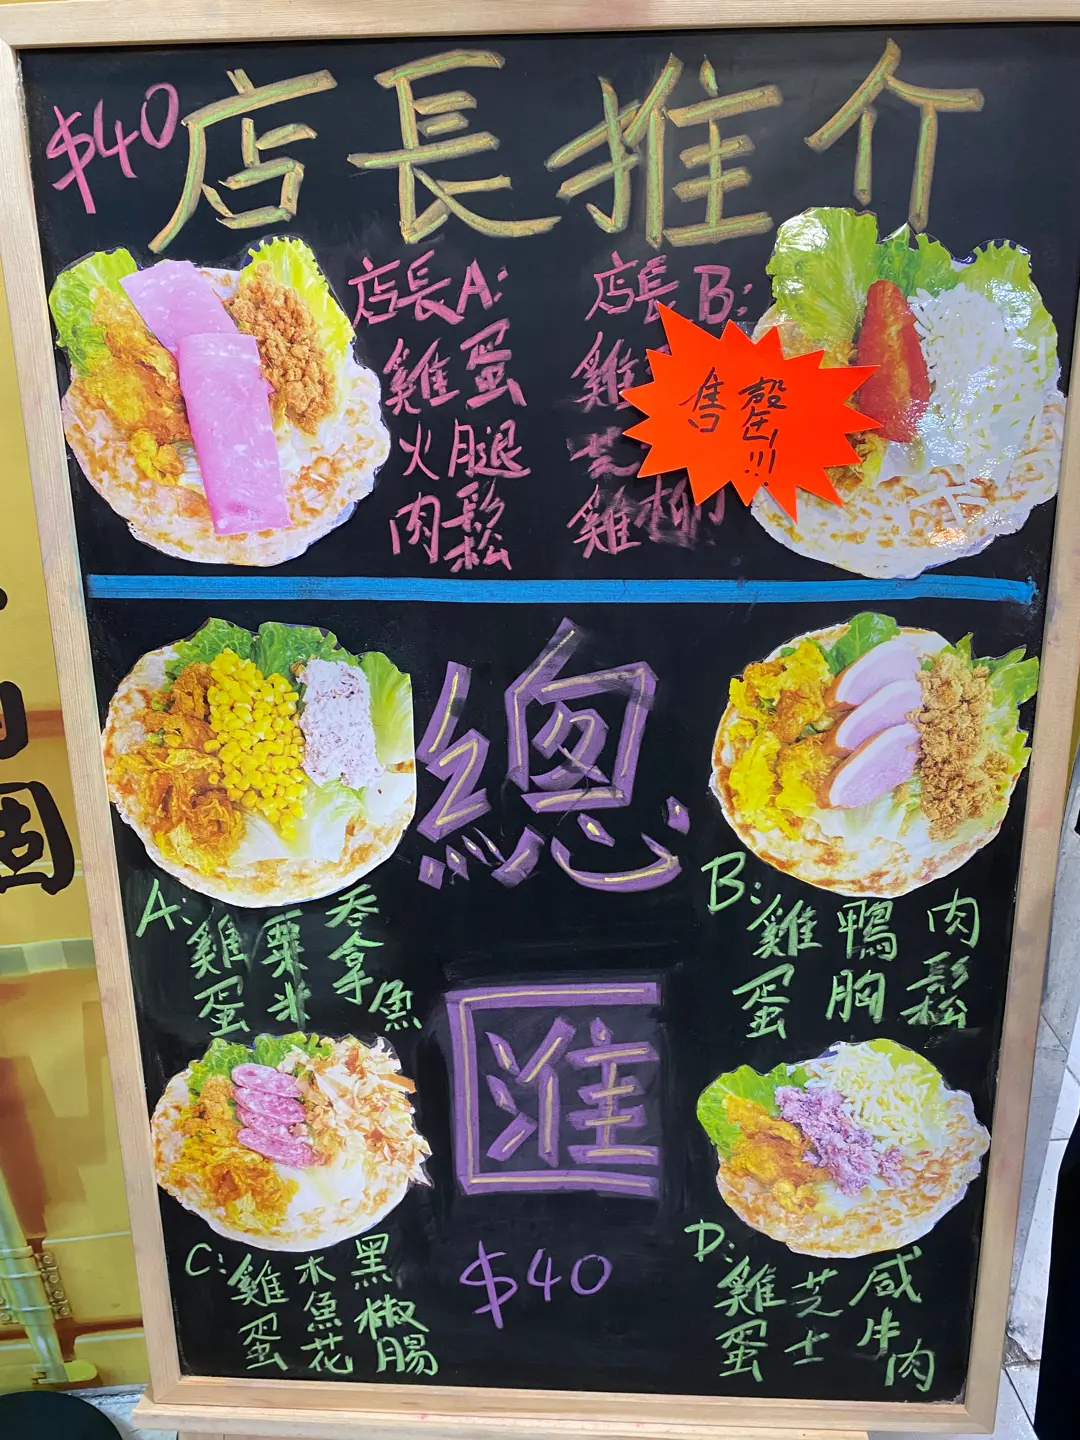 $40 店長推介
店長A:
雞蛋
火腿
肉鬆
店長B:
雞
芝
雞柳
售罄!!!
總匯
$40
A:
雞蛋
粟米
吞拿魚
B:
雞蛋
鴨胸
肉鬆
C:
雞蛋
木魚花
黑椒腸
D:
雞蛋
芝士
咸牛肉